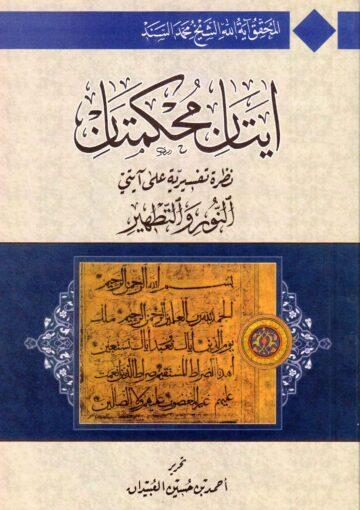 المحقق آية الله الشيخ محمد السند
ايتان محكمتان
نظرة تفسيرية على آيتي
النور والتطهير
بسم الله الرحمن الرحيم
الحمد لله رب العالمين الرحمن الرحيم مالك
يوم الدين اياك نعبد واياك نستعين
اهدنا الصراط المستقيم صراط الذين انعمت
عليهم غير المغضوب عليهم ولا الضالين
تحرير
أحمد بن حسين العبيدان